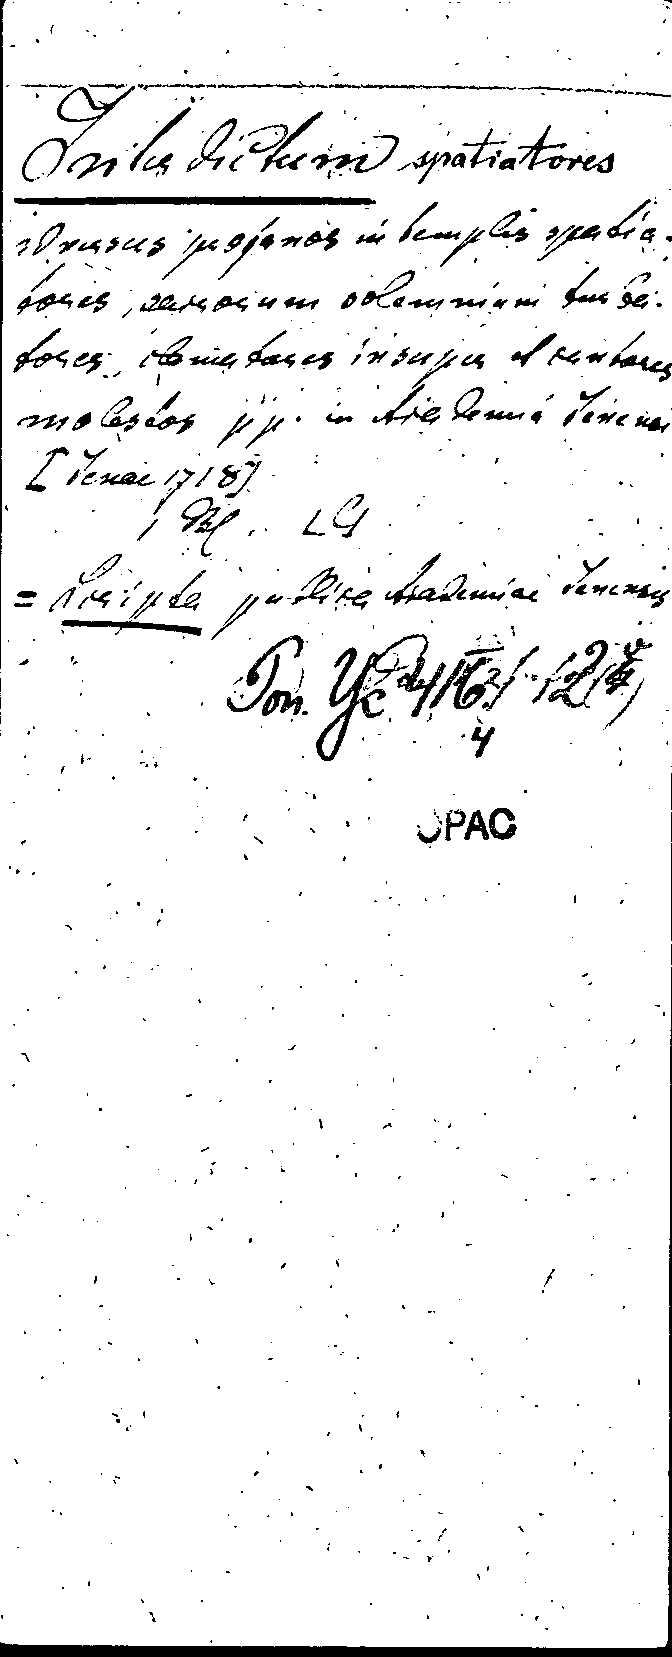 Interdictum spatiatores
adversus profanos in templis spatia-
tores, sacrorum solemnium turba-
tores, clamatores insuper et cantores
molestos pp. in Academia Jenensi
[Jenae 1718]
1 Bl.
= Scripta publica Academiae Jenensis
Pon. Yc
4
OPAC